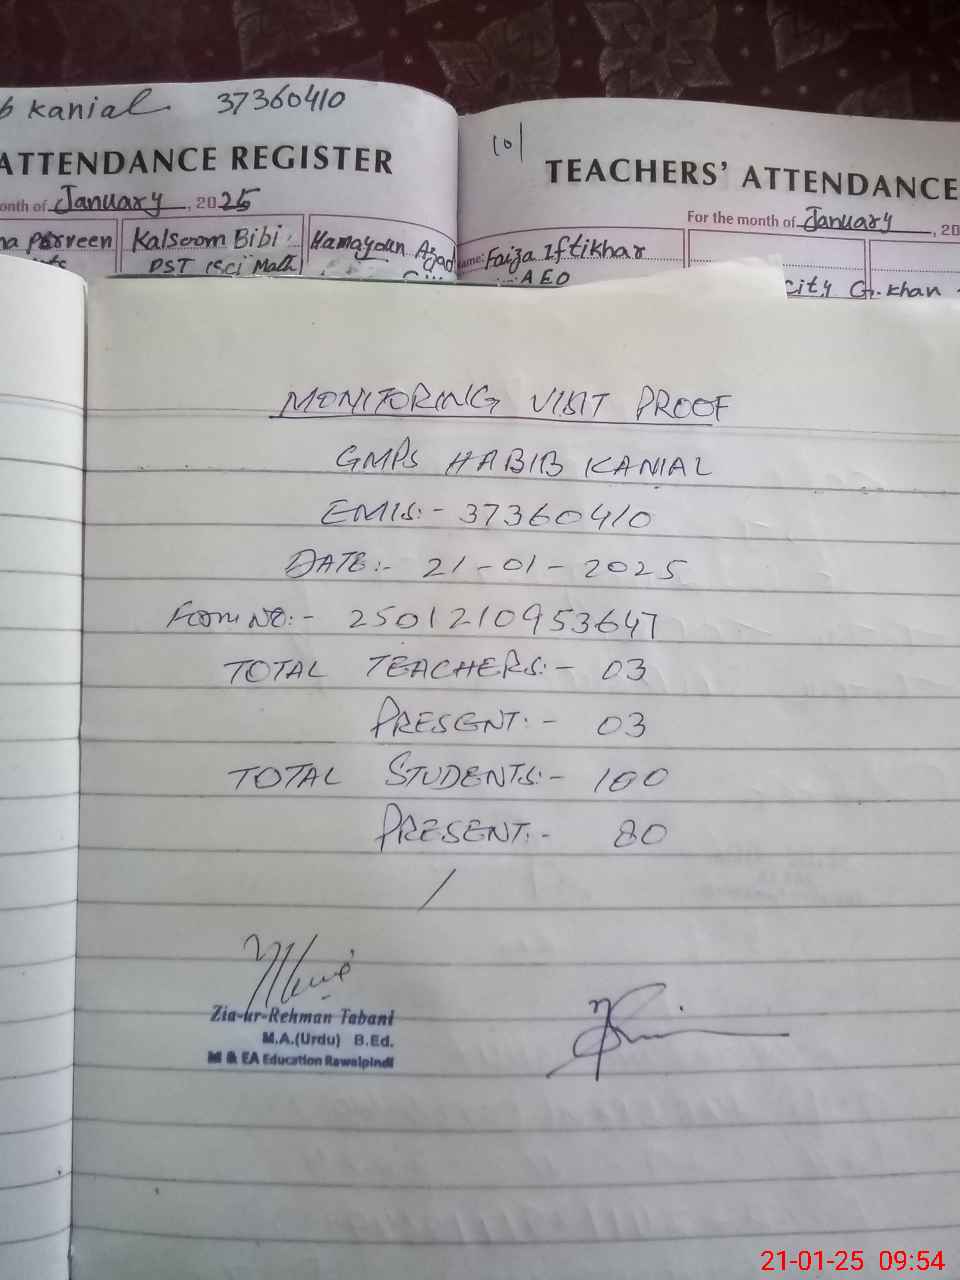 Kanial 37360410
ATTENDANCE REGISTER
onth of January, 2025
Parveen
Kalsoom Bibi
PST (Sci Math)
Hamayoun Azad
101
TEACHERS' ATTENDANCE
For the month of January, 20
ame: Faiza Iftikhar
AEO
city G.khan
MONITORING VISIT PROOF
GMPS HABIB KANIAL
EMIS:- 37360410
DATE:- 21-01-2025
Form NO:- 2501210953647
TOTAL TEACHERS:- 03
PRESENT:- 03
TOTAL STUDENTS:- 100
PRESENT:- 80
Zia-ur-Rehman Tabani
M.A.(Urdu) B.Ed.
M & EA Education Rawalpindi
21-01-25 09:54